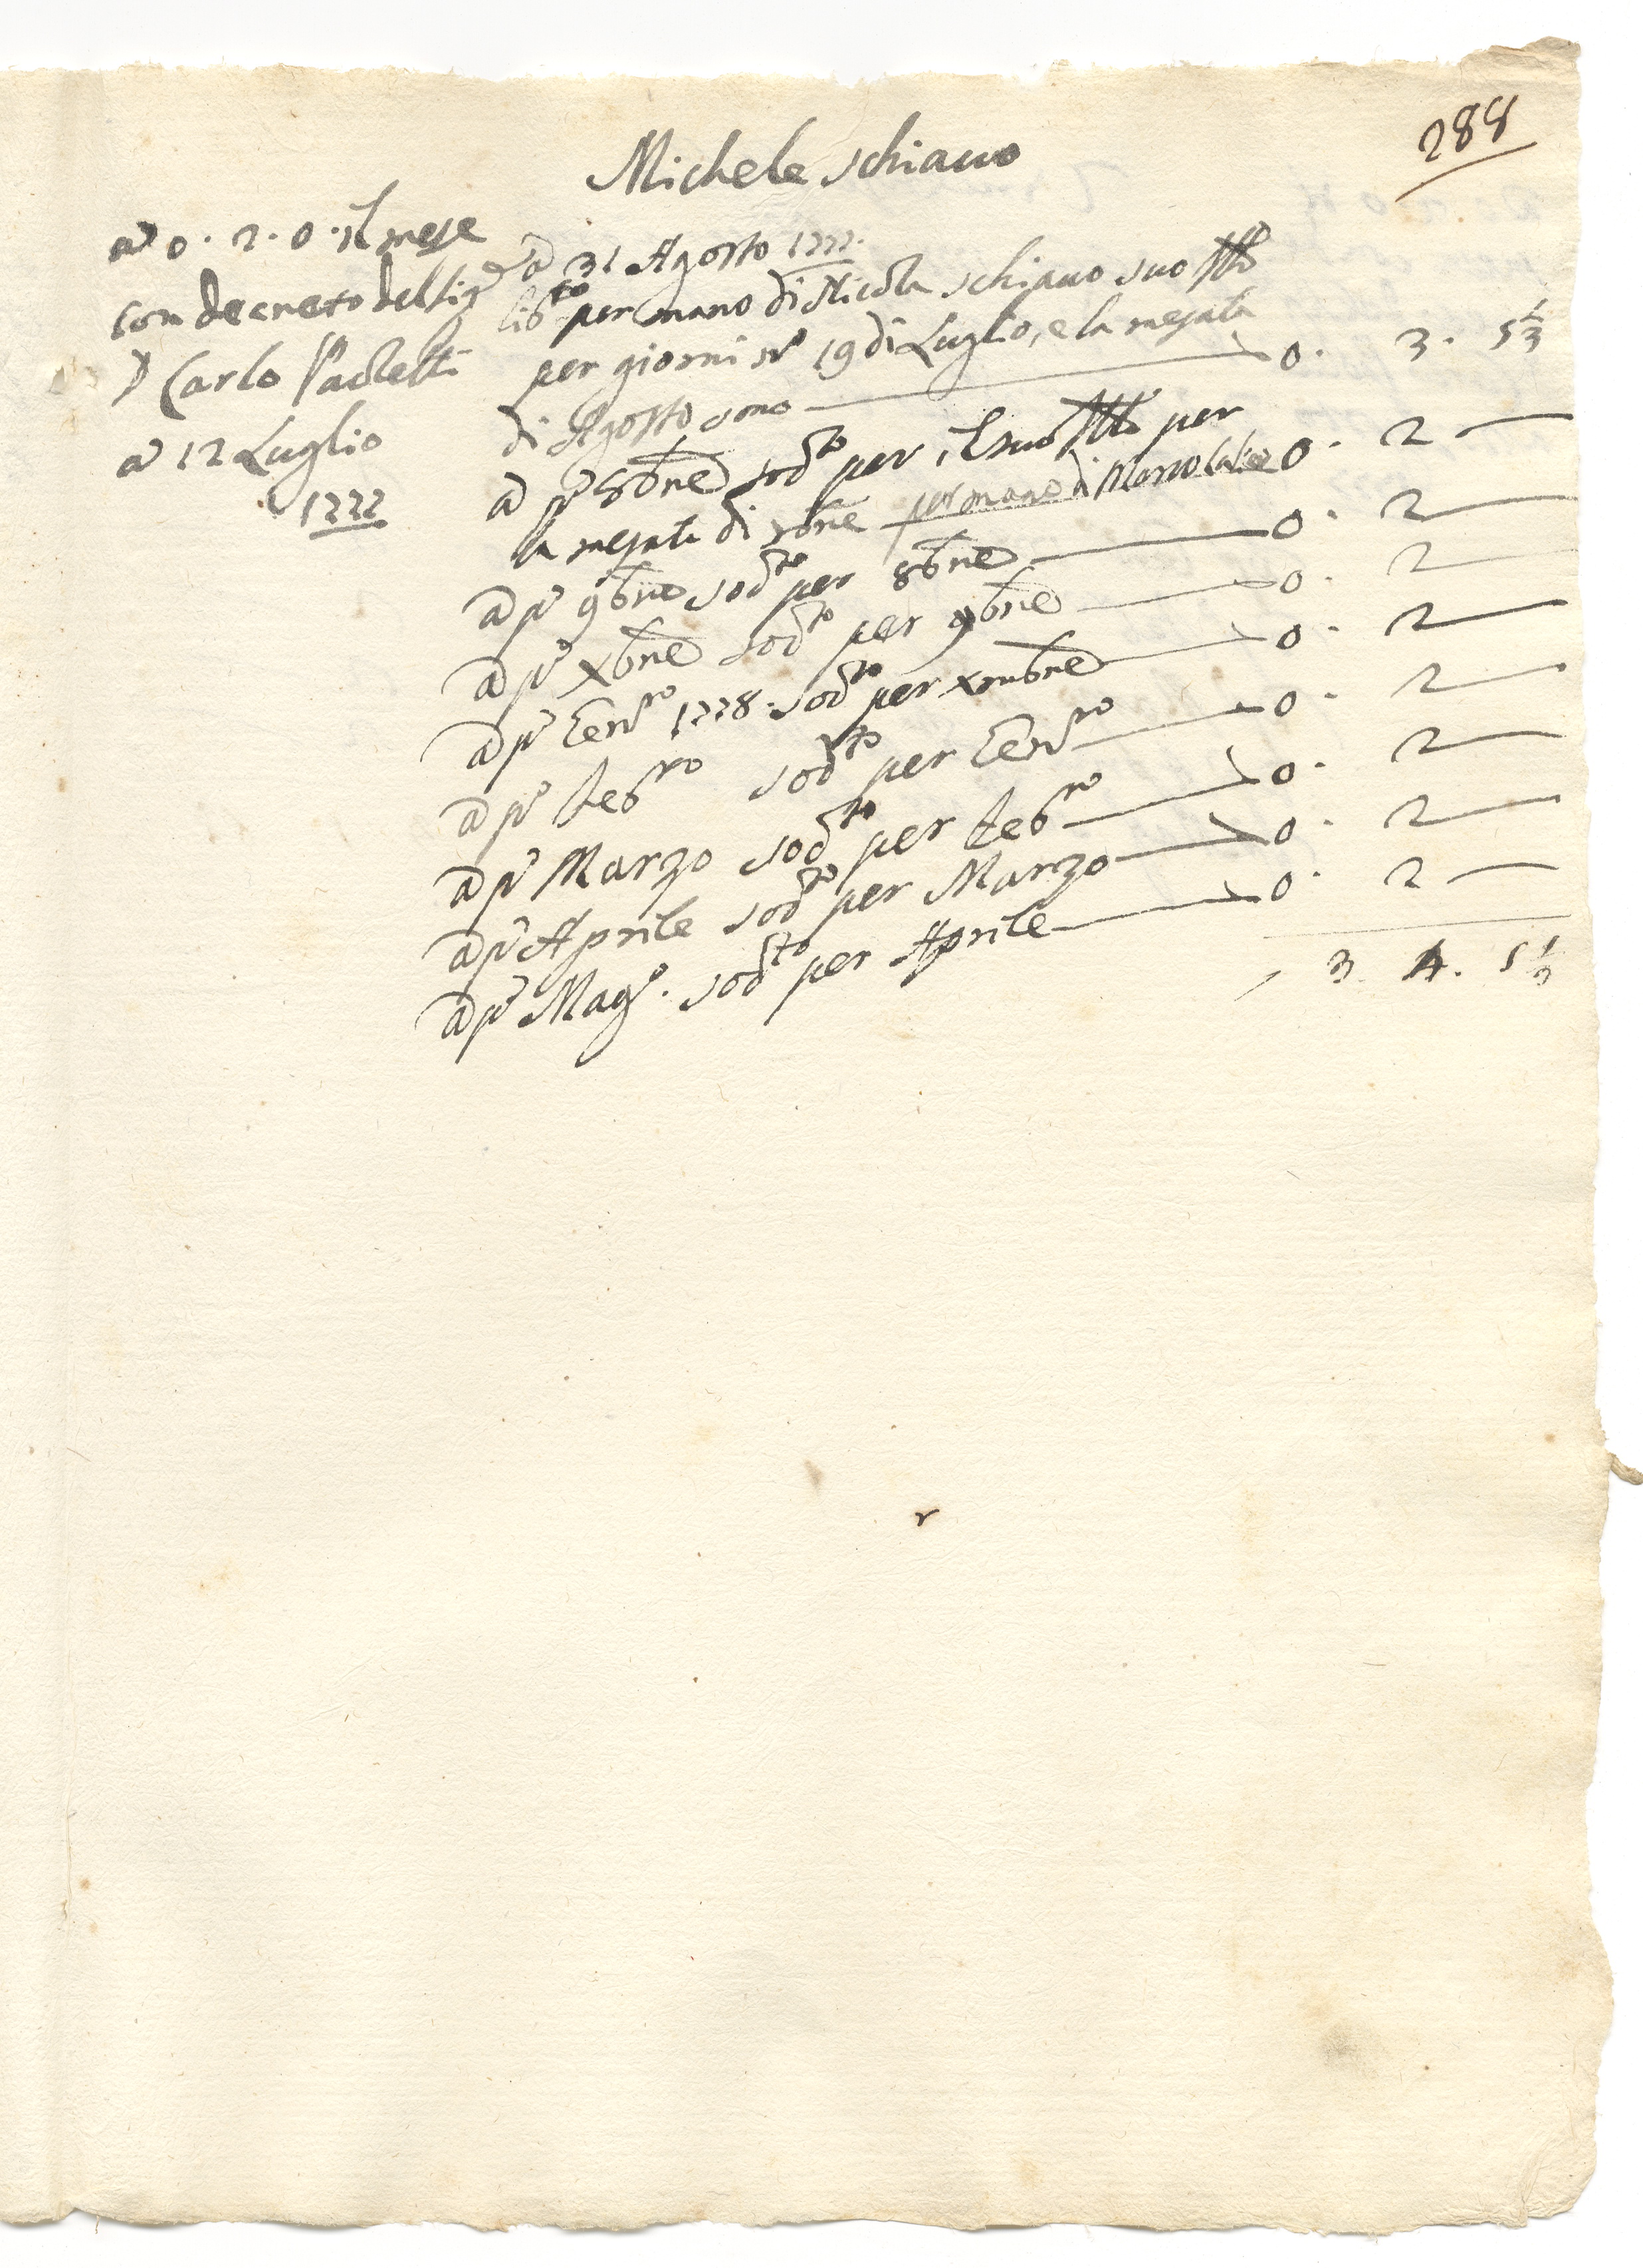 288
Michele Schiavo
a 0. 2. 0. il mese
con decreto del Sig.r
D Carlo Paoletti
a 12 Luglio
1777
a 31 Agosto 1777.
lib.to per mano di Nicola Schiavo suo
per giorni n.o 19 di Luglio, e la mesata
di Agosto sono 0. 3. 5 1/3
a p.o 8bre sod.to per il suo per
la mesata di 7bre per mano di Marco 0. 2
a p.o 9bre sod.to per 8bre 0. 2
a p.o Xbre sod.to per 9bre 0. 2
a p.o Gen.ro 1778. sod.to per Xmbre 0. 2
a p.o Feb.ro sod.to per Gen.ro 0. 2
a p.o Marzo sod.to per Feb.ro 0. 2
a p.o Aprile sod.to per Marzo 0. 2
a p.o Mag.o sod.to per Aprile 0. 2
3. 4. 5 1/3